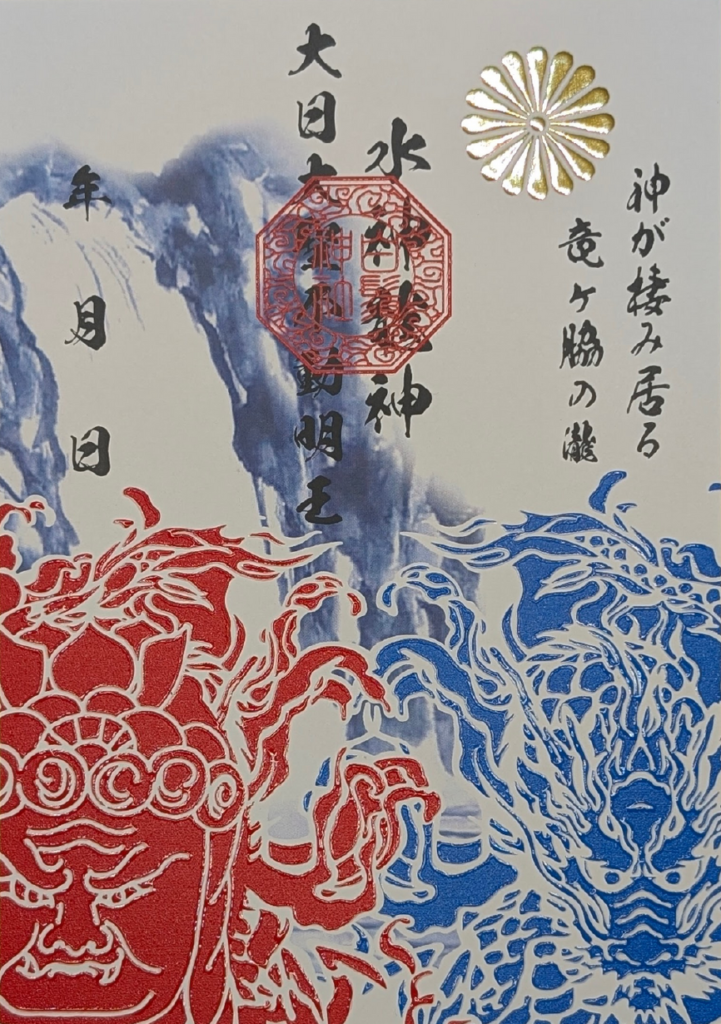 神が棲み居る
竜ヶ脇の瀧
水神龍神
大日大聖不動明王
年 月 日